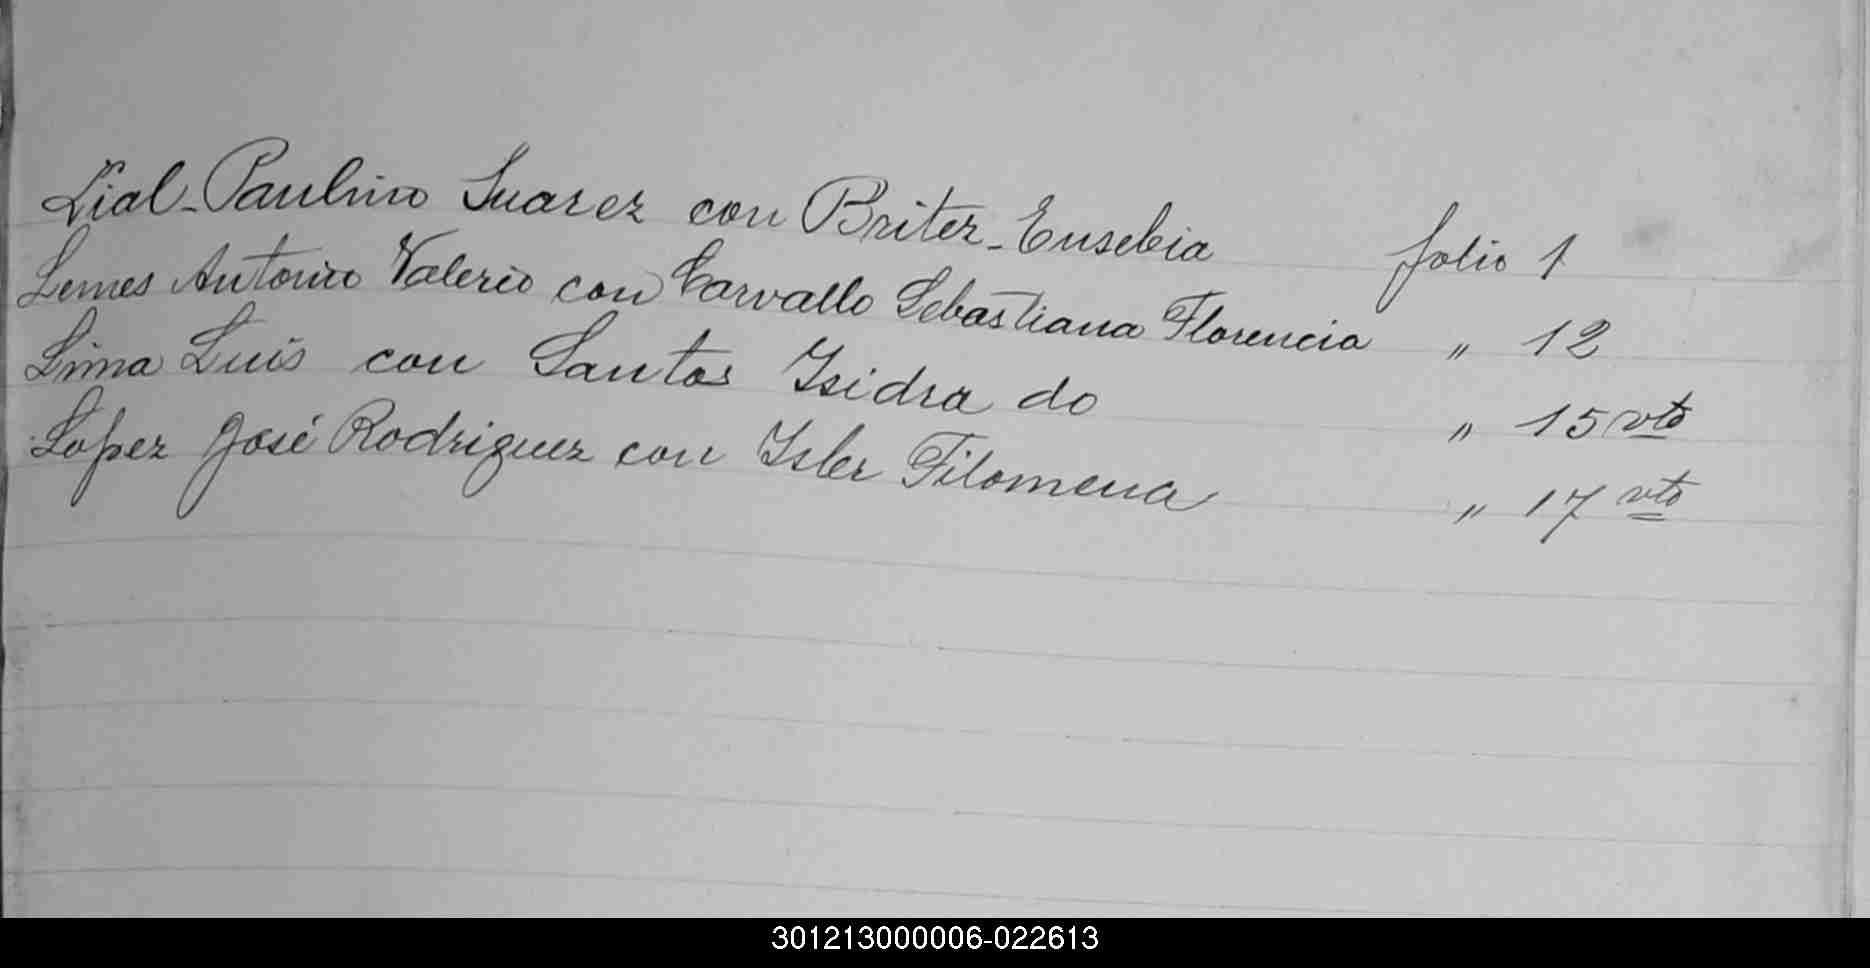 Lial-Paulino Suarez con Briter-Eusebia folio 1
Lemes Antonio Valerio con Carvallo Sebastiana Florencia " 12
Lima Luis con Santos Isidra do " 15 vto
Lopez José Rodriguez con Isler Filomena " 17 vto
301213000006-022613